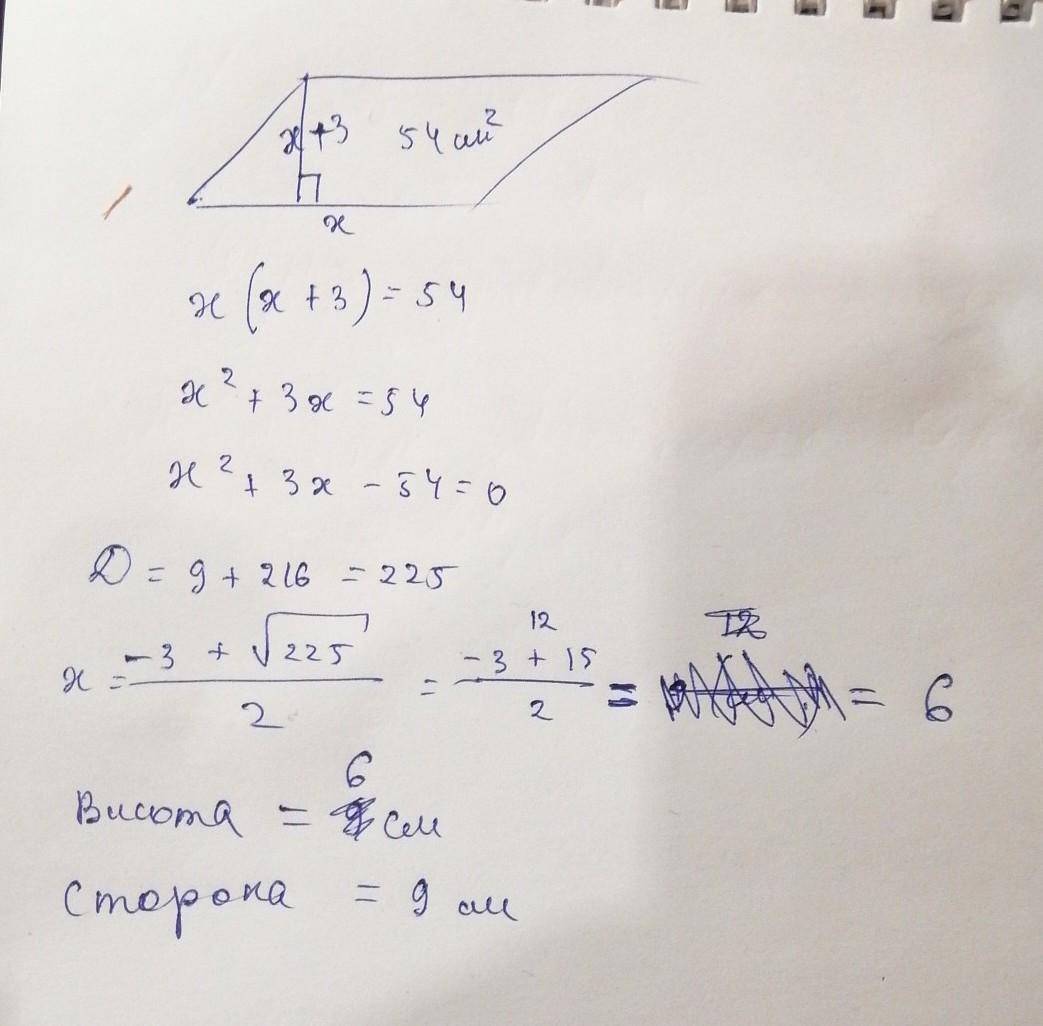 x+3 54 см²
x
x(x+3)=54
x²+3x=54
x²+3x-54=0
D=9+216=225
12
x=(-3+√225)/2=(-3+15)/2= =6
6
Висота = см
Сторона = 9 см